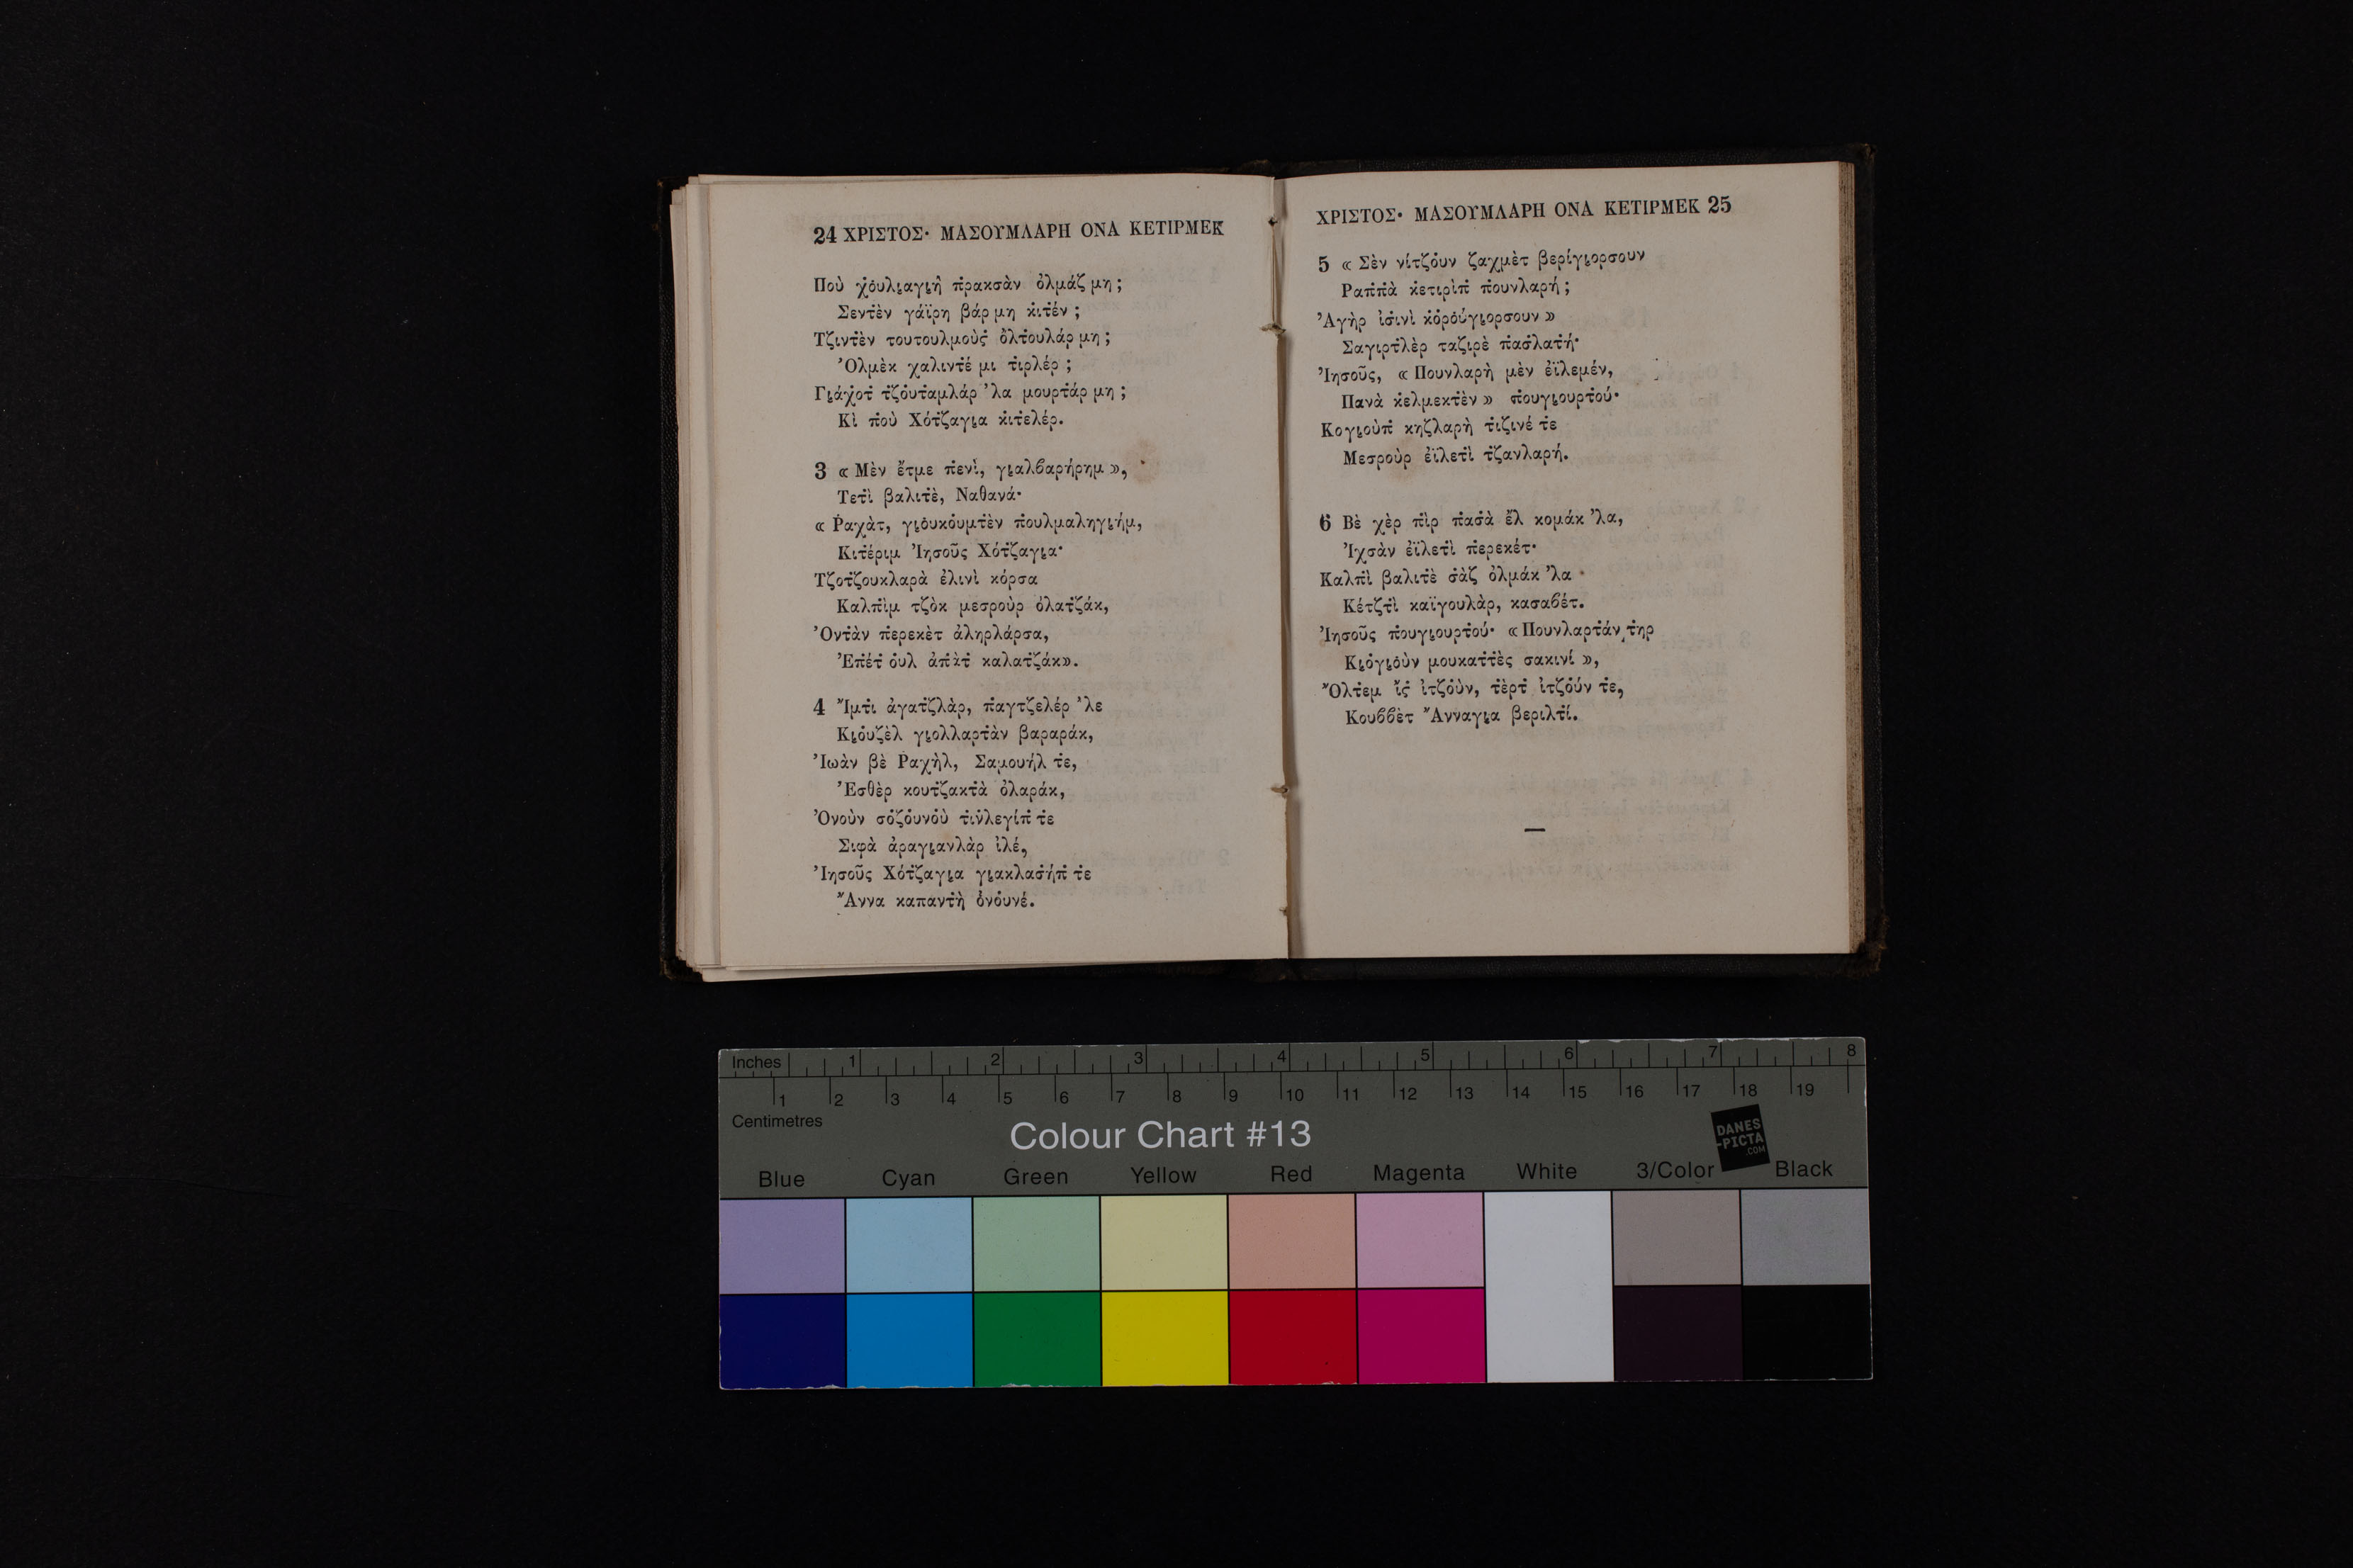 24 ΧΡΙΣΤΟΣ· ΜΑΣΟΥΜΛΑΡΗ ΟΝΑ ΚΕΤΙΡΜΕΚ
Ποὺ χ̇ο̇υλι̮αγι̮ὴ π̇ρακσὰν ὀλμάζ μη ;
Σεντ̇ὲν γάϊρη βάρ μη κ̇ιτ̇έν ;
Τζ̇ιντ̇ὲν τουτουλμοὺς̇ ὀλτ̇ουλάρ μη ;
Ὀλμὲκ χαλιντ̇έ μι τ̇ιρλέρ ;
Γι̮άχ̇οτ̇ τ̇ζο̇υτ̇αμλάρ ’λα μουρτ̇άρ μη ;
Κὶ π̇οὺ Χότ̇ζαγι̮α κ̇ιτ̇ελέρ.
3 « Μὲν ἔτμε π̇ενὶ, γι̮αλβαρήρημ »,
Τετ̇ὶ βαλιτ̇ὲ, Ναθανά·
« Ῥαχὰτ, γι̮ο̇υκο̇υμτ̇ὲν π̇ουλμαληγι̮ήμ,
Κιτ̇έριμ Ἰησοῦς Χότ̇ζαγι̮α·
Τζοτ̇ζουκλαρὰ ἐλινὶ κόρσα
Καλπ̇ὶμ τζὸκ μεσροὺρ ὀλατ̇ζάκ,
Ὀντ̇ὰν π̇ερεκὲτ ἀληρλάρσα,
Ἐπ̇έτ̇ ο̇υλ ἀπ̇ὰτ̇ καλατ̇ζάκ».
4 Ἴμτ̇ι ἀγατ̇ζλὰρ, π̇αγτζελέρ ’λε
Κι̮ο̇υζὲλ γι̮ολλαρτ̇ὰν βαραράκ,
Ἰωὰν βὲ Ῥαχὴλ, Σαμουήλ τ̇ε,
Ἐσθὲρ κουτ̇ζακτ̇ὰ ὀλαράκ,
Ὀνοὺν σο̇ζο̇υνο̇ὺ τ̇ιν̇λεγίπ̇ τ̇ε
Σιφὰ ἀραγι̮ανλὰρ ἰλέ,
Ἰησοῦς Χότ̇ζαγι̮α γι̮ακλασ̇ήπ̇ τ̇ε
Ἄννα καπαντ̇ὴ ὀνο̇υνέ.
ΧΡΙΣΤΟΣ· ΜΑΣΟΥΜΛΑΡΗ ΟΝΑ ΚΕΤΙΡΜΕΚ 25
5 « Σὲν νίτζο̇υν ζαχμὲτ βερίγι̮ορσουν
Ραπ̇π̇ὰ κ̇ετιρὶπ̇ π̇ουνλαρή ;
Ἀγὴρ ἰσ̇ινὶ κ̇ο̇ρο̇ύγι̮ορσουν »
Σαγιρτ̇λὲρ ταζιρὲ π̇ασ̇λατ̇ή·
Ἰησοῦς, « Πουνλαρὴ μὲν ἐϊλεμέν,
Πανὰ κ̇ελμεκτ̇ὲν » π̇ουγι̮ουρτ̇ού·
Κογι̮οὺπ̇ κηζλαρὴ τ̇ιζινέ τε
Μεσροὺρ ἐϊλετ̇ὶ τ̇ζανλαρή.
6 Βὲ χὲρ π̇ὶρ π̇ασ̇ὰ ἔλ κομάκ ’λα,
Ἰχσὰν ἐϊλετ̇ὶ π̇ερεκέτ·
Καλπ̇ὶ βαλιτ̇ὲ σ̇ὰζ ὀλμάκ ’λα
Κέτζτ̇ὶ καϊγουλὰρ, κασαβέτ.
Ἰησοῦς π̇ουγι̮ουρτ̇ού· « Πουνλαρτ̇άν τ̇ηρ
Κι̮ο̇γι̮ο̇ὺν μουκατ̇τ̇ὲς σακινί »,
Ὄλτ̇εμ ἴς̇ ἰτζο̇ὺν, τ̇ὲρτ̇ ἰτζο̇ύν τ̇ε,
Κουββὲτ Ἄνναγι̮α βεριλτ̇ί.
Inches 1 2 3 4 5 6 7 8
1 2 3 4 5 6 7 8 9 10 11 12 13 14 15 16 17 18 19
Centimetres
Colour Chart #13
DANES
-PICTA
.COM
Blue Cyan Green Yellow Red Magenta White 3/Color Black